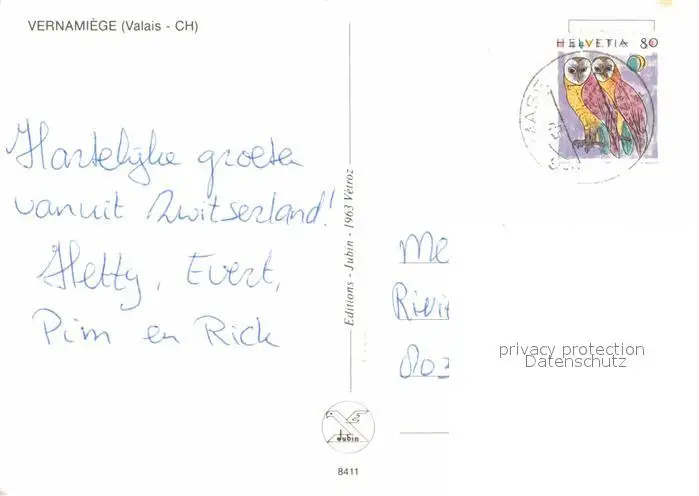 VERNAMIÈGE (Valais - CH)
HELVETIA 80
Hartelijke groeten
vanuit Zwitserland!
Hetty, Evert,
Pim en Rick
Editions - Jubin - 1963 Vétroz
Me
803
privacy protection
Datenschutz
Jubin
8411